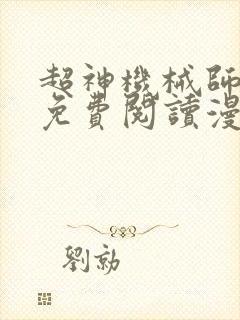 超神機械師
免費閱讀漫
劉勍